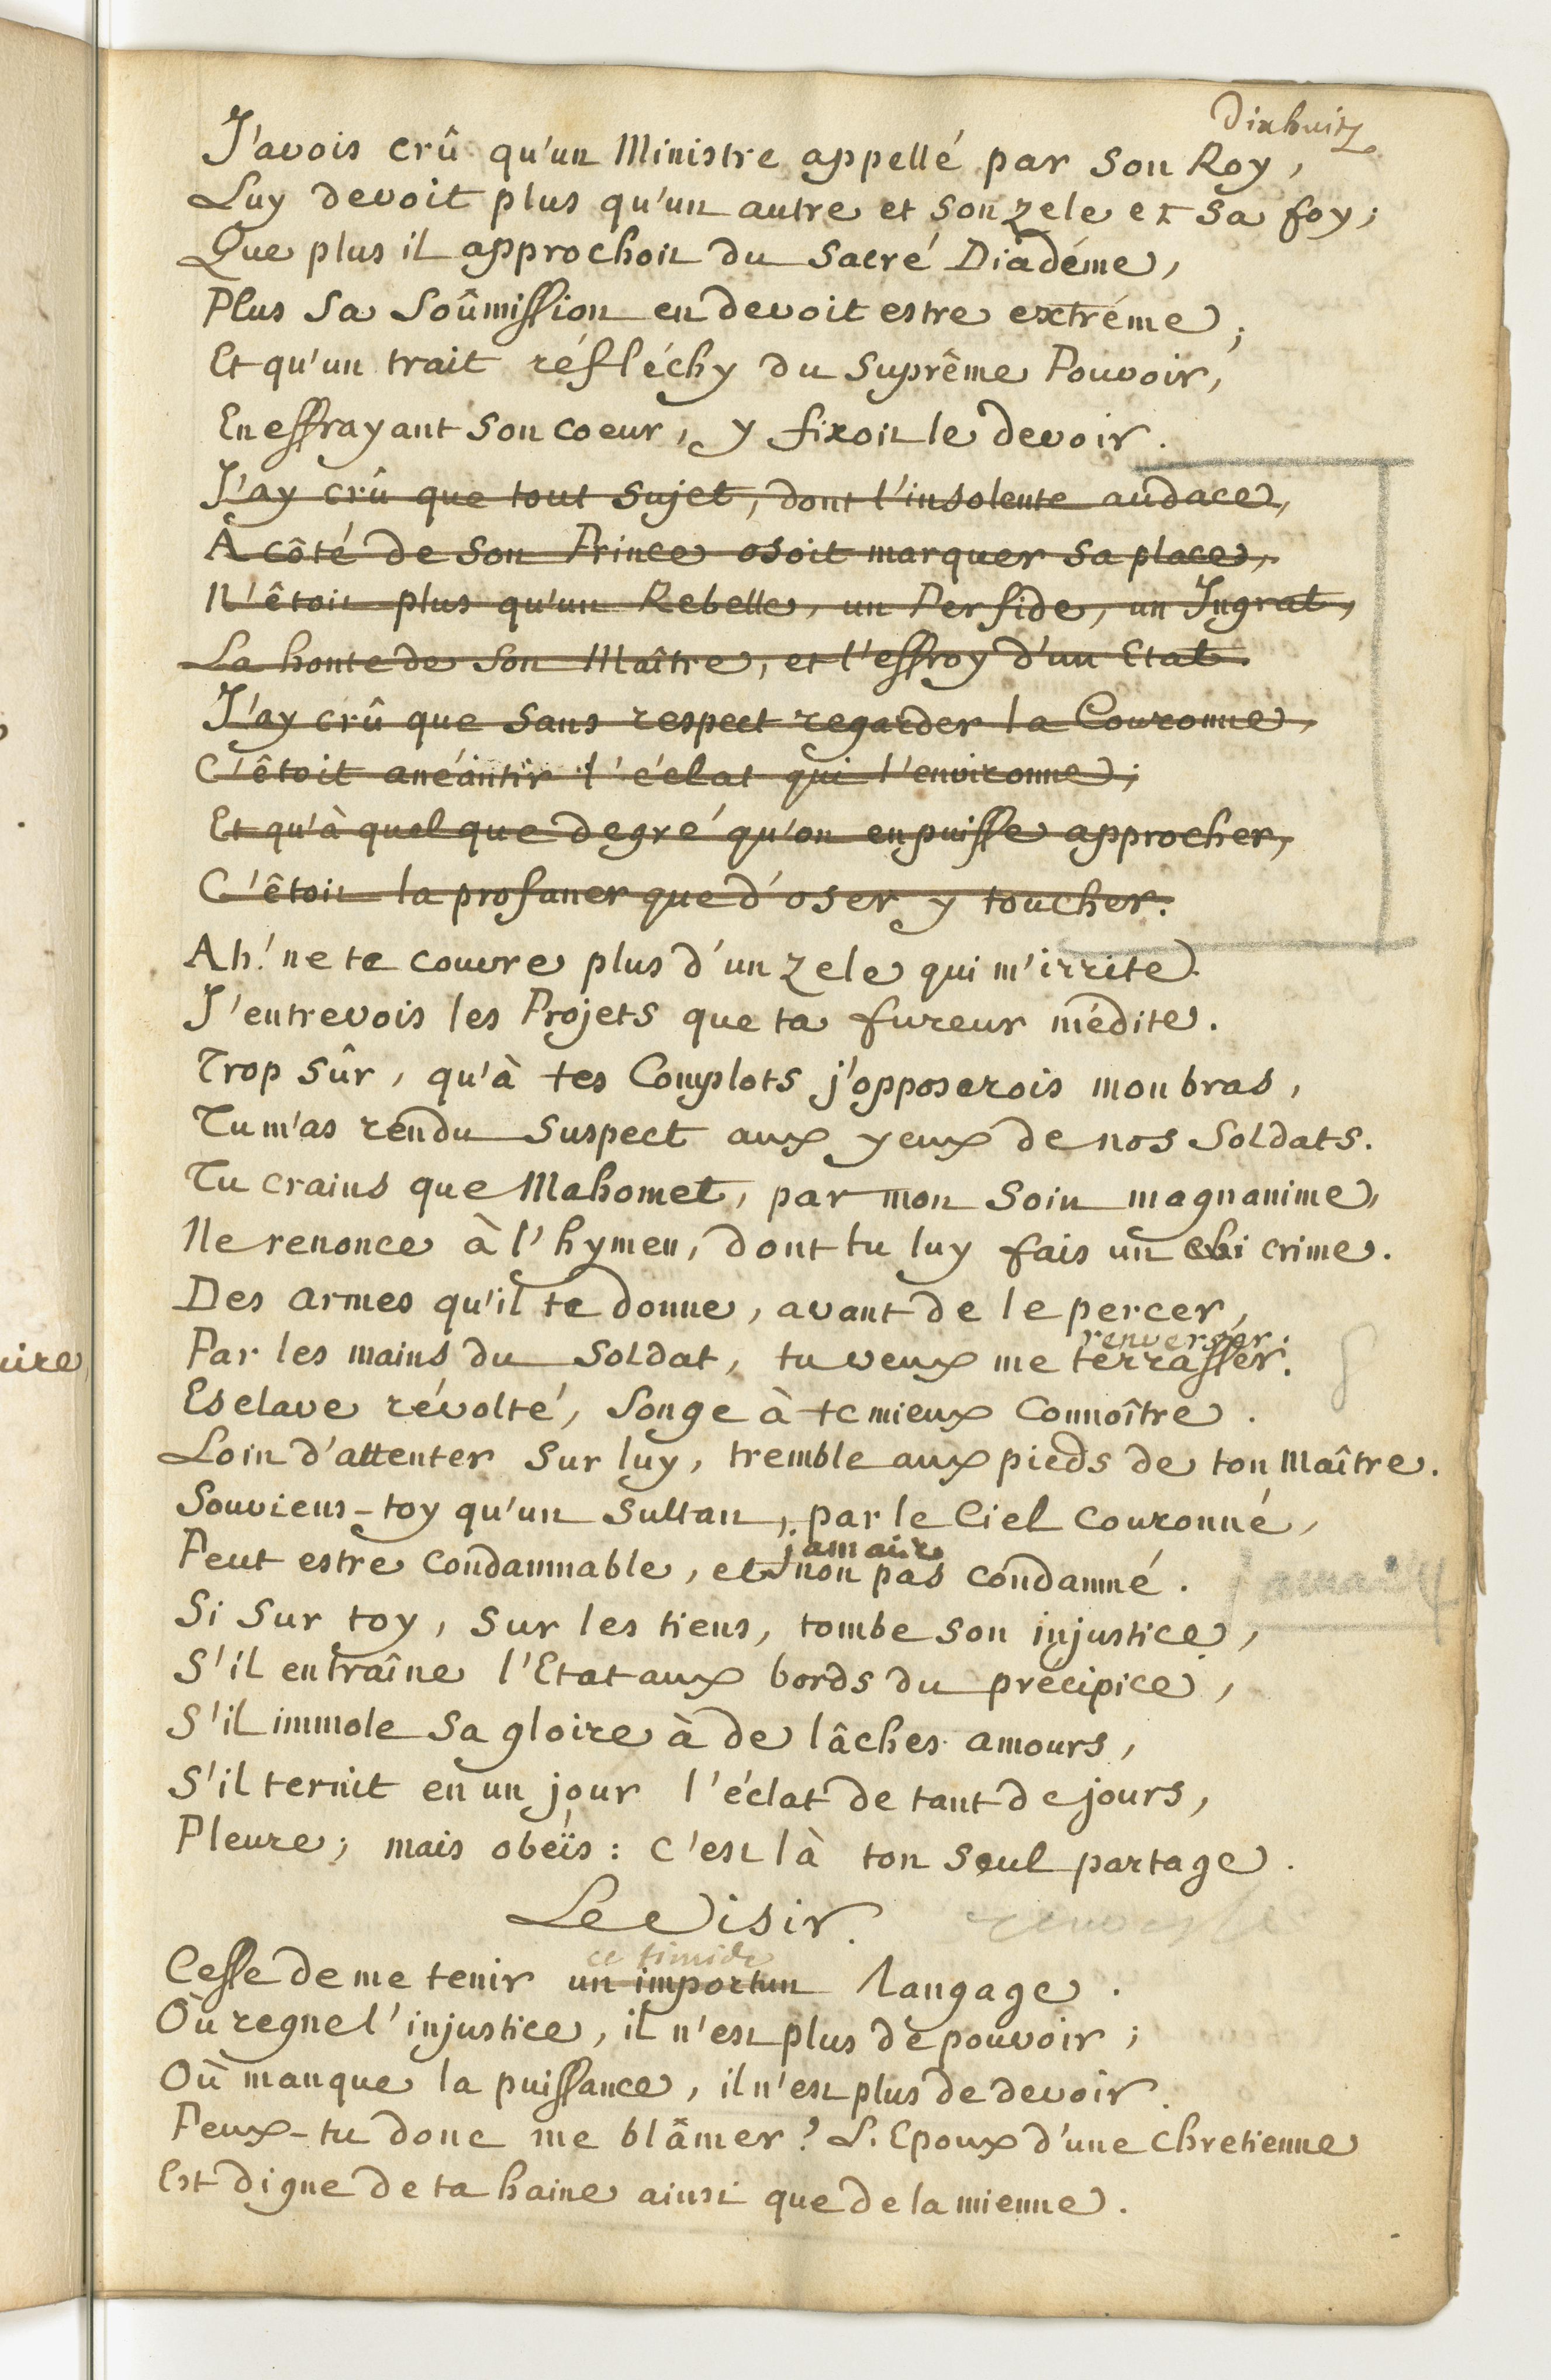 Dixhuit
J'avois crû qu'un Ministre appellé par son Roy,
Luy devoit plus qu'un autre et son zele et sa foy;
Que plus il approchoit du sacré Diadéme,
Plus sa soûmission en devoit estre extréme;
Et qu'un trait réfléchy du suprême Pouvoir,
En effrayant son coeur, y fixoit le devoir.
J'ay crû que tout sujet, dont l'insolente audace,
A côté de son Prince osoit marquer sa place,
N'êtoit plus qu'un Rebelle, un Perfide, un Ingrat,
La honte de son Maître, et l'effroy d'un Etat.
J'ay crû que sans respect regarder la Couronne,
C'êtoit anéantir l'éclat qui l'environne;
Et qu'à quelque degré qu'on en puisse approcher,
C'êtoit la profaner que d'oser y toucher.
Ah! ne te couvre plus d'un zele qui m'irrite.
J'entrevois les Projets que ta fureur médite.
Trop sûr, qu'à tes Complots j'opposerois mon bras,
Tu m'as rendu suspect aux yeux de nos Soldats.
Tu crains que Mahomet, par mon soin magnanime,
Ne renonce à l'hymen, dont tu luy fais un crime.
Des armes qu'il te donne, avant de le percer,
renverser.
Par les mains du Soldat, tu veux me terrasser.
Esclave révolté, songe à te mieux connoître.
Loin d'attenter sur luy, tremble aux pieds de ton Maître.
Souviens-toy qu'un Sultan, par le Ciel couronné,
jamais
Peut estre condamnable, et non pas condamné. jamais
Si sur toy, sur les tiens, tombe son injustice,
S'il entraîne l'Etat aux bords du précipice,
S'il immole sa gloire à de lâches amours,
S'il ternit en un jour l'éclat de tant de jours,
Pleure; mais obéïs: c'est là ton seul partage.
Le Visir.
ce timide
Cesse de me tenir un importun langage.
Où regne l'injustice, il n'est plus de pouvoir;
Où manque la puissance, il n'est plus de devoir.
Peux-tu donc me blâmer? L'Epoux d'une chretienne
Est digne de ta haine ainsi que de la mienne.